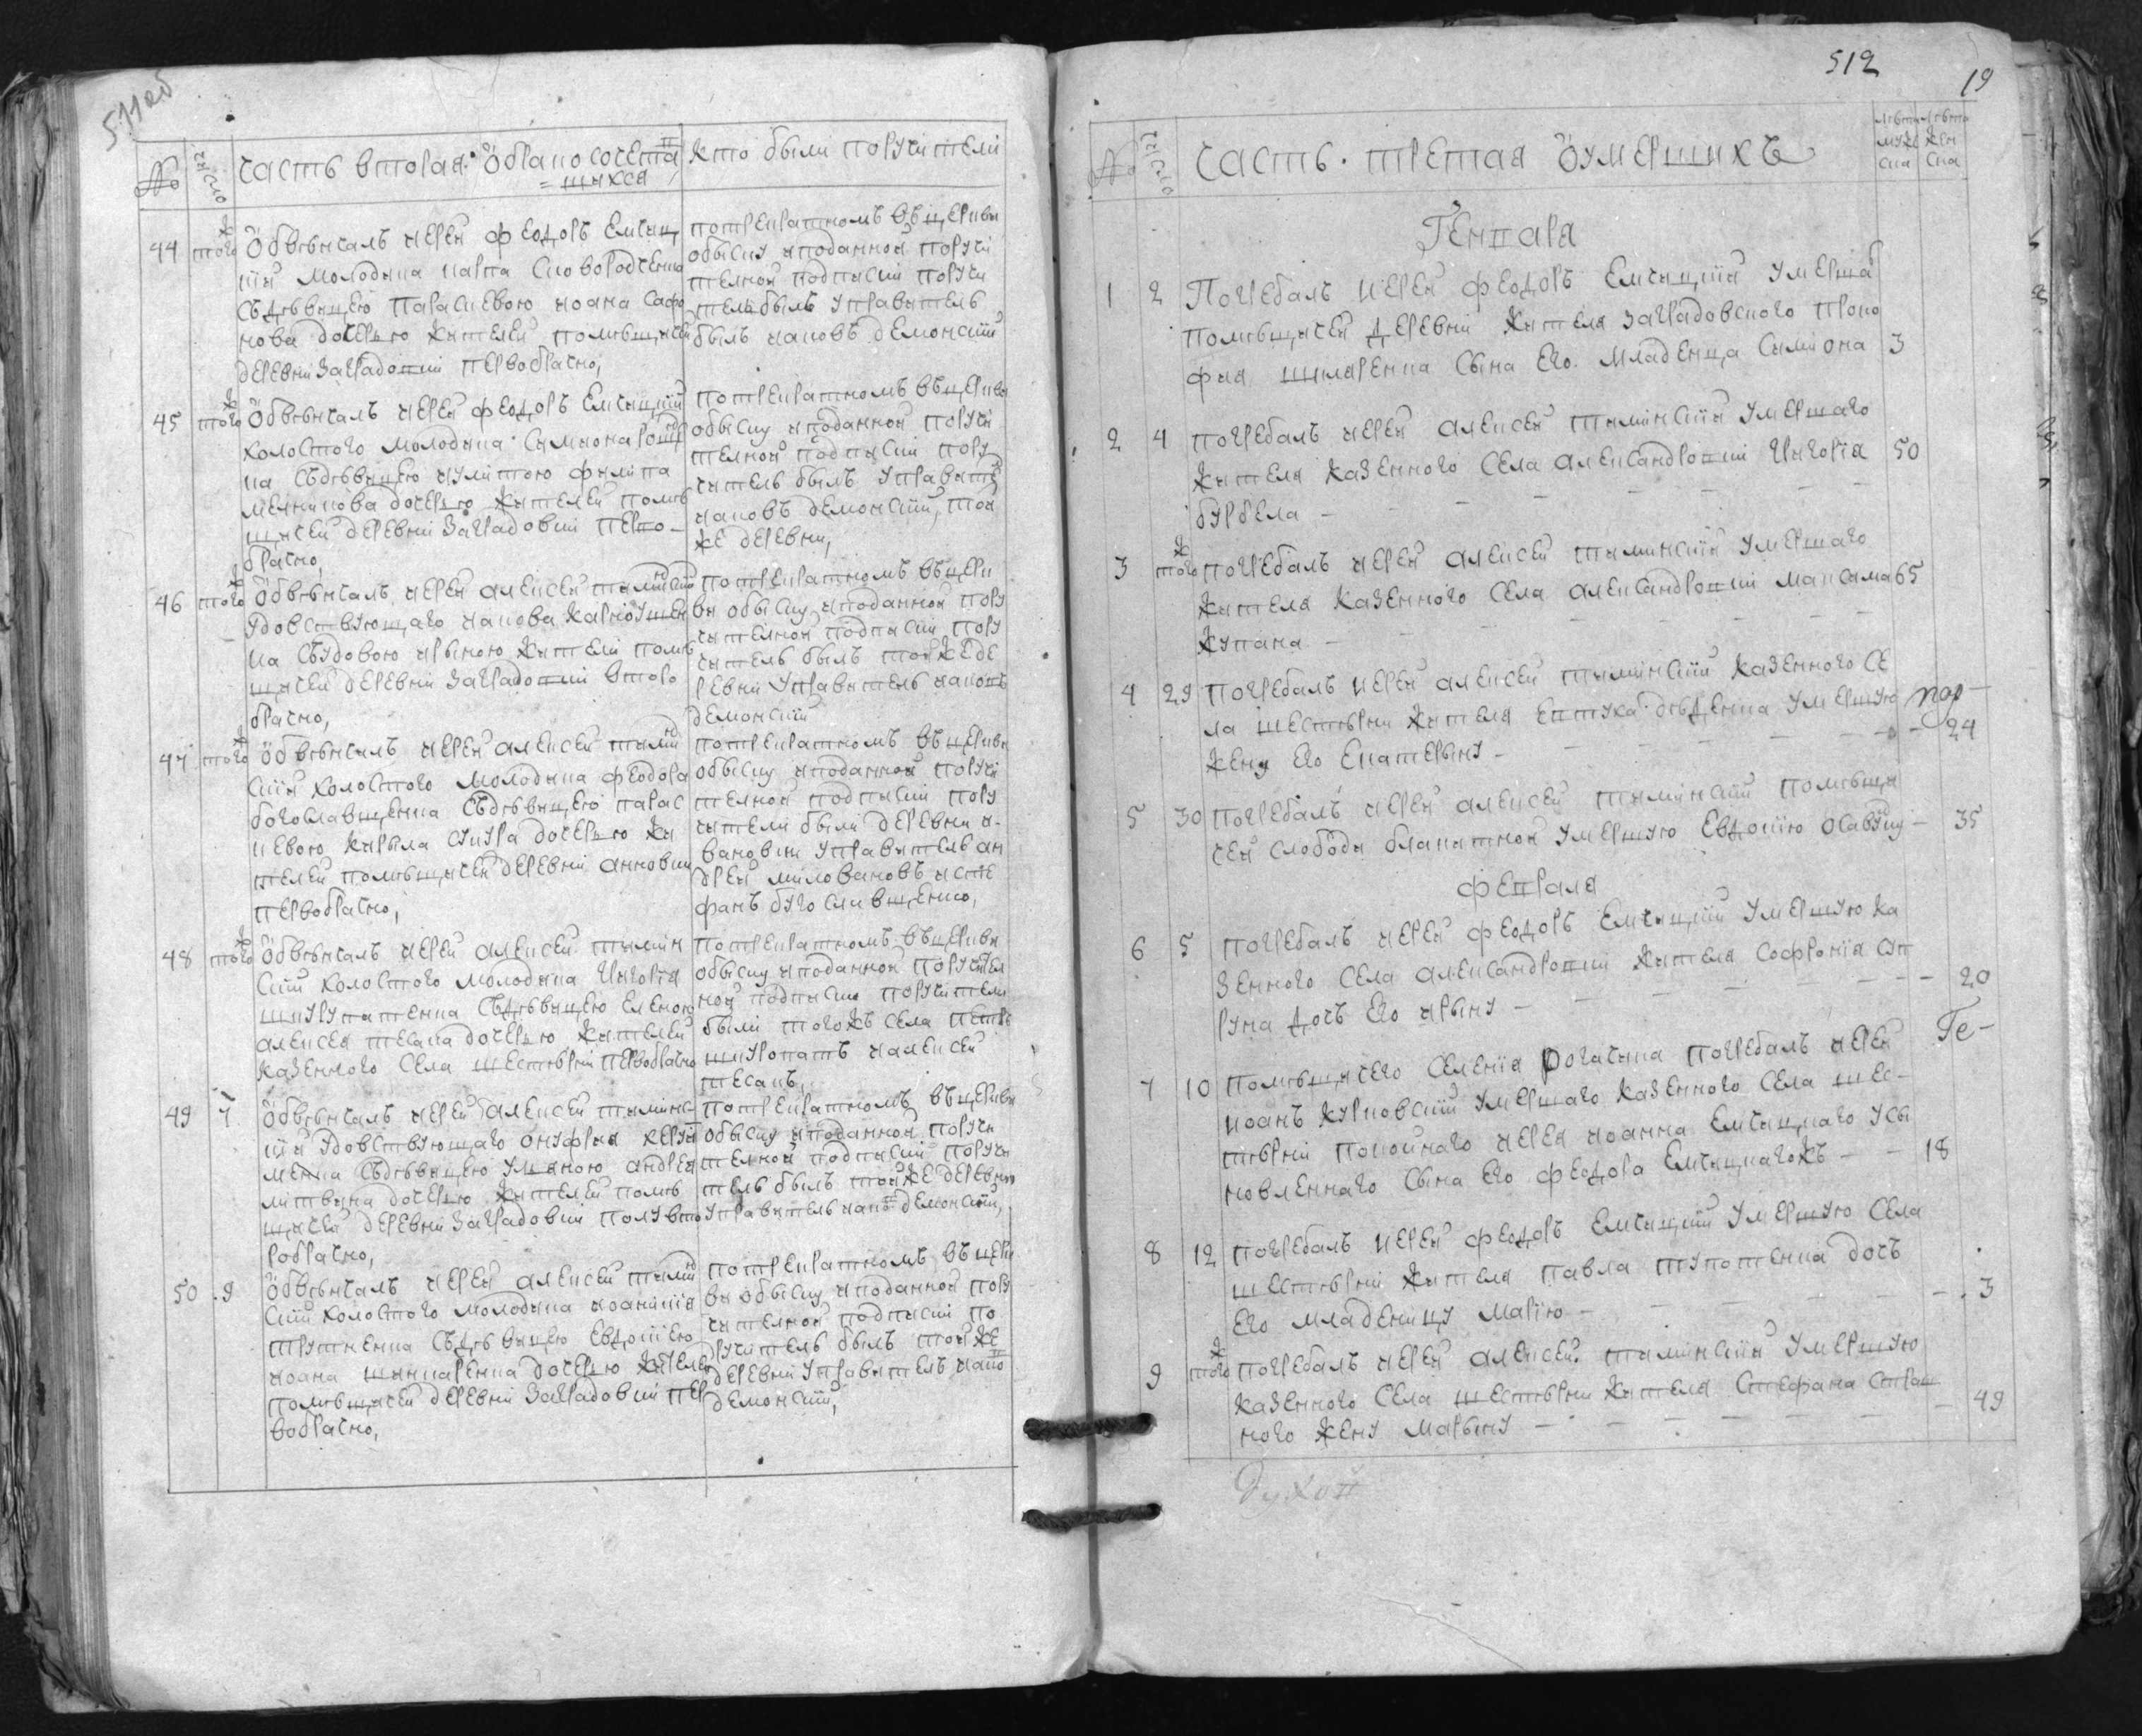 511об
№ число Часть вторая о бракосочета
=щихся
Кто были поручители
44 того ж Обвенчалъ иерей феодоръ Емчиц
кий молодика карпа Сковородченка
Съдѣвицею Параскевою иоана Сафо
нова дочерью жителей помѣщичей
деревни Заградовки первобрачно,
потрекратномъ въцеркви
обыску иподанной поручи
телной подписки поручи
тель былъ управитель
былъ яковъ демонскій
45 того ж Обвенчалъ иерей феодоръ Емчицкій
холостого молодика Симиона
ка Съдѣвицею иулитою филипа
мелникова дочерью жителей помѣ
щичей деревни Заградовки перво-
брачно,
потрекратномъ въцеркви
обыску иподанной поручи
телной подписки пору
читель былъ управите
яковъ демонскій, той
же деревни,
46 того ж Обвенчалъ иерей алексей тяминский
удовствующаго якова
ка Съудовою ириною жители помѣ
щичей деревни Заградовки второ
брачно,
потрекратномъ въцерк
ви обыску иподанной пору
чителной подписки пору
читель былъ той же де
ревни управитель яковъ
демонский
47 того ж обвенчалъ иерей алексей тямин
ский холостого молодика феодора
богославщенка Съдѣвицею парас
кевою кирила сукура дочерью жи
телей помѣщичей деревни анновки
первобрачно,
потрекратномъ въцеркви
обыску иподанной поручи
телной подписки пору
чители были деревни и-
вановки управитель ан
дрей миловановъ исте
фанъ бугославщенко,
48 того ж Обвенчалъ иерей алексей тямин
ский холостого молодика Григорія
шкурупатенка Съдѣвицею Еленою
алексея тесака дочерью жителей
казенного Села шестѣрни первобрачно
потрекратномъ въцеркви
обыску иподанной поручител
ной подписки поручители
были тогожъ Села петръ
шкуропатъ иалексей
тесакъ,
49 7 Обвенчалъ иерей алексей тяминс-
кій удовствующаго онуфрия
менка Съдѣвицею улияною андрея
литвина дочерью жителей помѣ
щичей деревни Заградовки полувто
робрачно,
потрекратномъ въцеркви
обыску иподанной поручи
телной подписки поручи
тель былъ той же деревни
управитель яковъ демонский,
50 9 Обвенчалъ иерей алексей тямин
ский холостого молодика иоаникія
трутненка Съдѣвицею Евдокиею
иоана шинкаренка дочерью жителей
помѣщичей деревни Заградовки пер
вобрачно,
потрекратномъ въцерк
ви обыску иподанной пору
чителной подписки по
ручитель былъ той же
деревни управитель яковъ
демонский,
512
19
№ число Часть третая оумершихъ
лѣта мужеска
лѣта женска
Генваря
1 2 Погребалъ иерей феодоръ Емчицкий умерша
помѣщичей деревни жителя заградовского проко
фия шкляренка Сына Его младенца Симиона 3
2 4 погребалъ иерей алексей тяминский умершаго
жителя казенного Села александровки Григория 50
бурбела -
3 того ж погребалъ иерей алексей тяминский умершаго
жителя казенного Села александровки максима 65
жупана -
4 29 погребалъ иерей алексей тяминский казенного Се
ла шестѣрни жителя Евтуха дѣденка умершую
жену Его Екатерину - 24
5 30 погребалъ иерей алексей тяминский помѣщи
чей слободы блакитной умершую Евдокию - 35
февраля
6 5 погребалъ иерей феодоръ Емчицкий умершую ка
зенного Села александровки жителя Софрония суп
руна дочь Его ирину - 20
7 10 помѣщичего селения Рогачика погребалъ иерей
иоанъ курповский умершаго казенного Села шес-
тѣрни покойнаго иерея иоанна Емчицкаго усы
новленнаго Сына Его феодора Емчицкагожъ - 18
8 12 погребалъ иерей феодоръ Емчицкий умершую Села
шестѣрни жителя павла тупотенка дочь
Его младеницу Марию - 3
9 того ж погребалъ иерей алексей тяминский умершую
казенного Села шестѣрни жителя Стефана Страш
ного жену Марину - 49
Духов